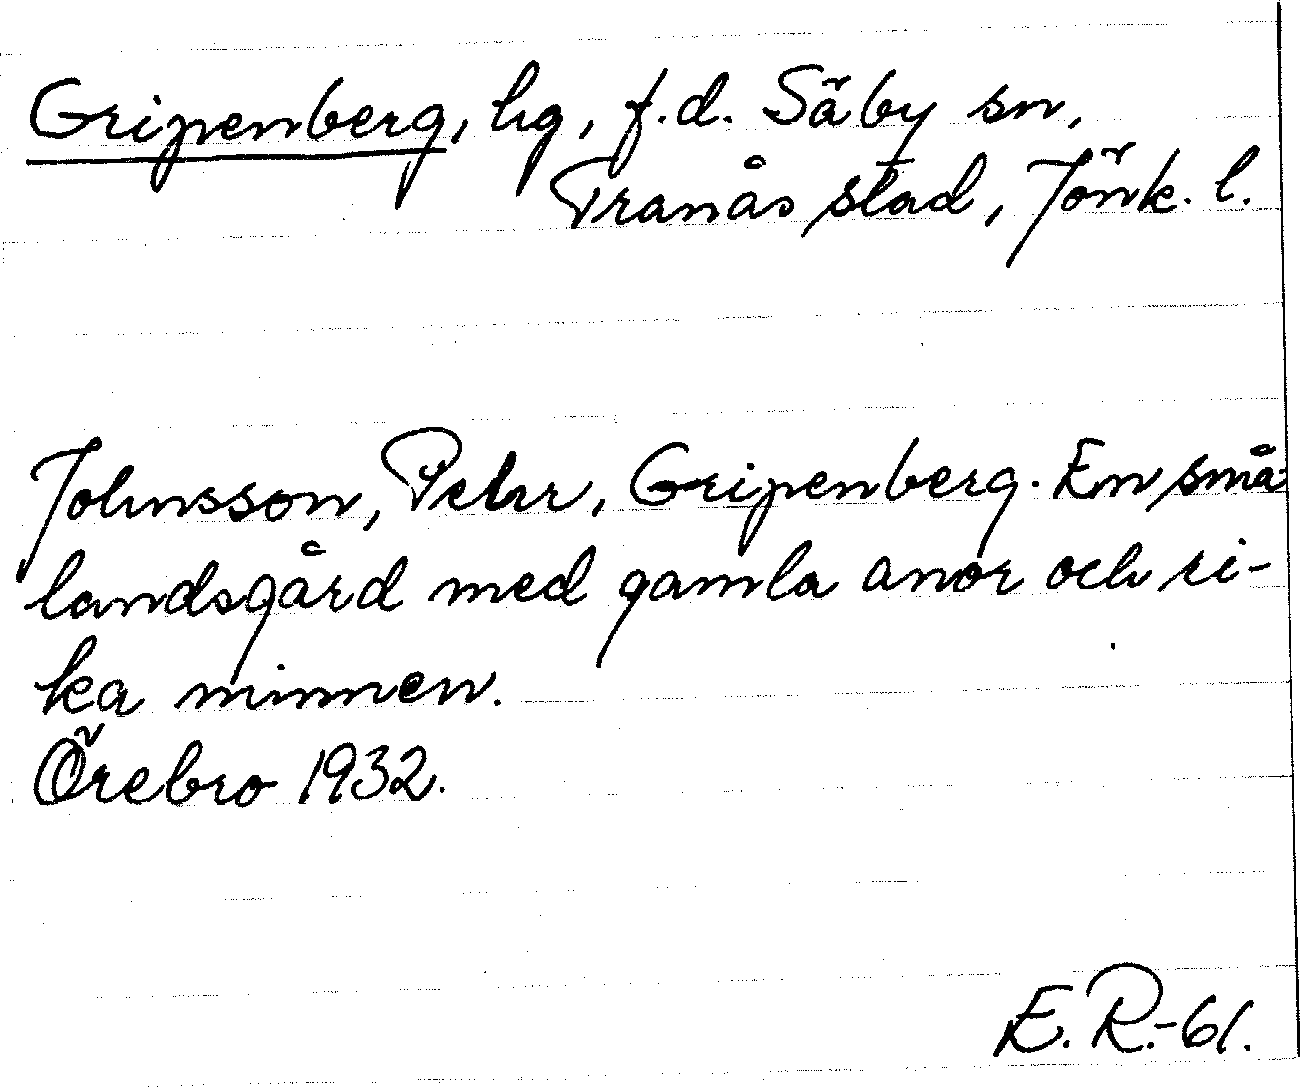 Gripenberg, hg, f.d. Säby sn,
Tranås stad, Jönk. l.
Johnsson, Pehr, Gripenberg. En små-
landsgård med gamla anor och ri-
ka minnen.
Örebro 1932.
E. R.-61.